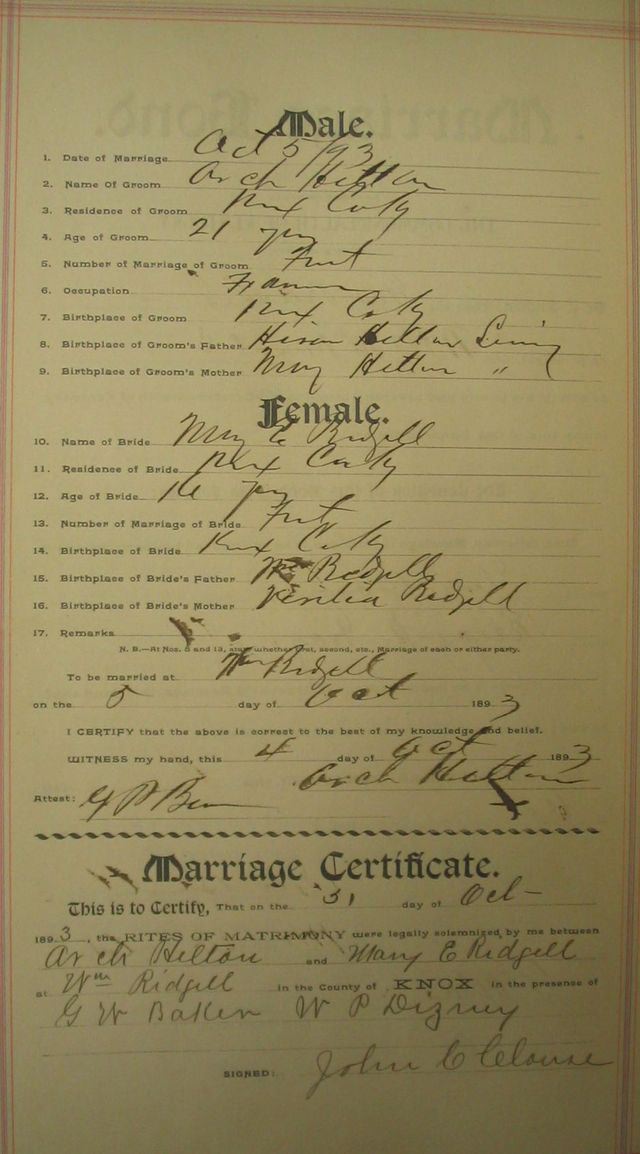 Male.
1. Date of Marriage Oct 5/93
2. Name of Groom Arch Helton
3. Residence of Groom Knx Co Ky
4. Age of Groom 21 yrs
5. Number of Marriage of Groom First
6. Occupation Farmer
7. Birthplace of Groom Knx Co Ky
8. Birthplace of Groom's Father Hiram Helton Living
9. Birthplace of Groom's Mother Mary Helton "
Female.
10. Name of Bride Mary E Ridgell
11. Residence of Bride Knx Co Ky
12. Age of Bride 16 yrs
13. Number of Marriage of Bride First
14. Birthplace of Bride Knx Co Ky
15. Birthplace of Bride's Father Wm Ridgell
16. Birthplace of Bride's Mother Ridgell
17. Remarks
N. B.—At Nos. 5 and 13, state whether first, second, etc., Marriage of each or either party.
To be married at Wm Ridgell
on the 5 day of Oct 1893
I CERTIFY that the above is correct to the best of my knowledge and belief.
WITNESS my hand, this 4 day of Oct 1893
Arch Helton
Attest: G P
Marriage Certificate.
This is to Certify, That on the 31 day of Oct
1893, the RITES OF MATRIMONY were legally solemnized by me between
Arch Helton and Mary E Ridgell
at Wm Ridgell in the County of KNOX in the presence of
G W Baker W P Dizney
SIGNED: John C Clouse